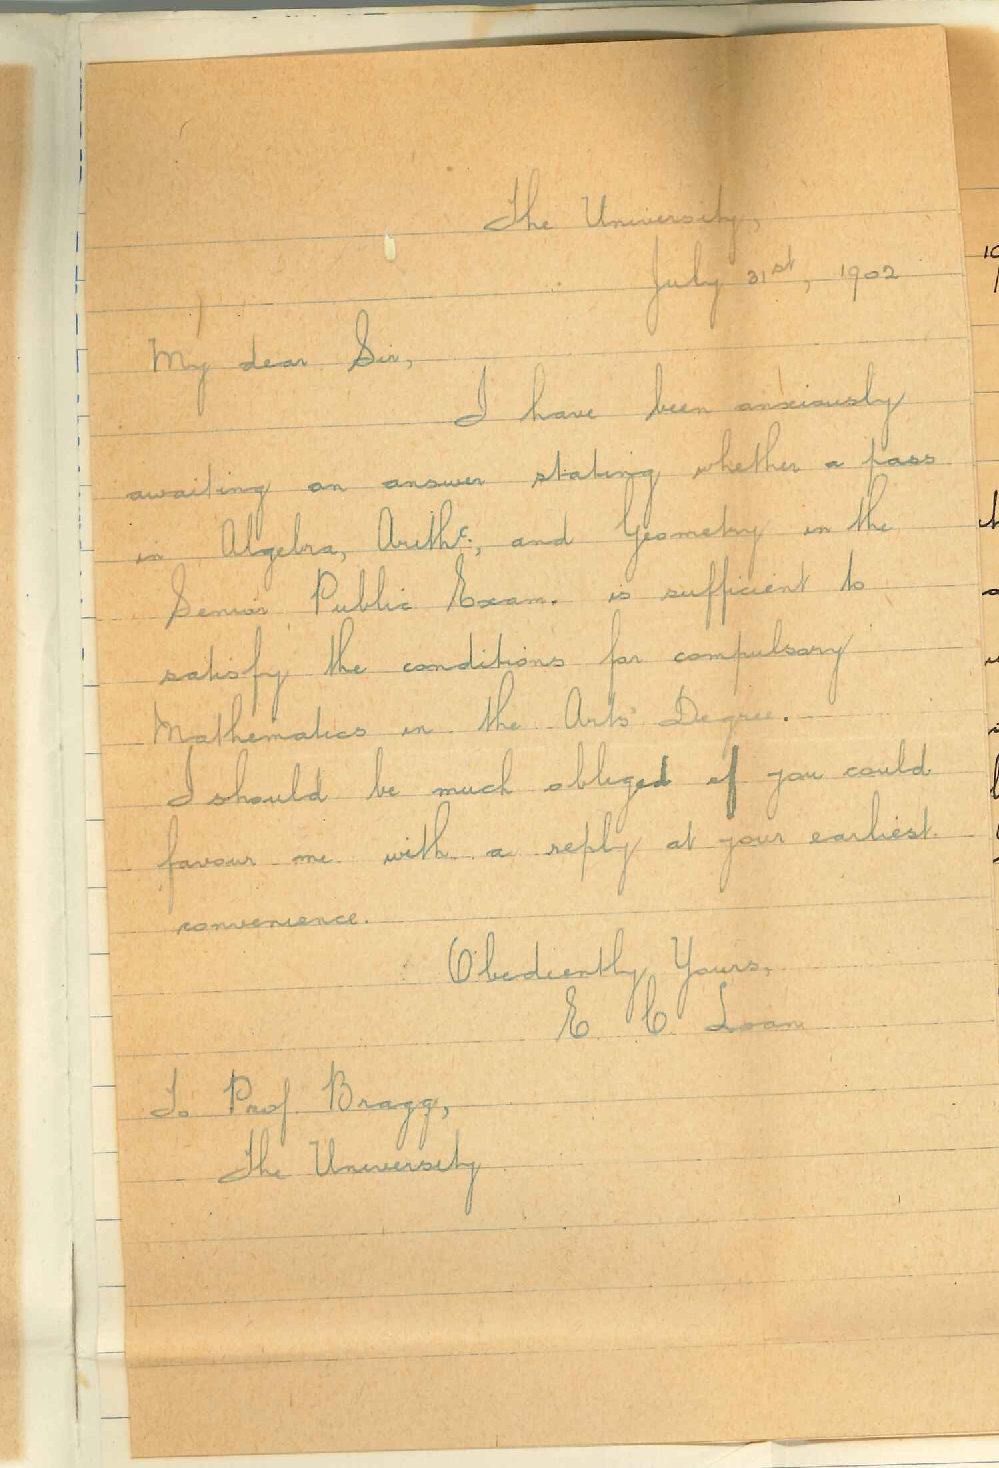 The University,
July 31st, 1902
My dear Sir,
I have been anxiously
awaiting an answer stating whether a pass
in Algebra, Arithc., and Geometry in the
Senior Public Exam. is sufficient to
satisfy the conditions for compulsory
Mathematics in the Arts' Degree.
I should be much obliged if you could
favour me with a reply at your earliest
convenience.
Obediently Yours,
E C Loan
To Prof. Bragg,
The University